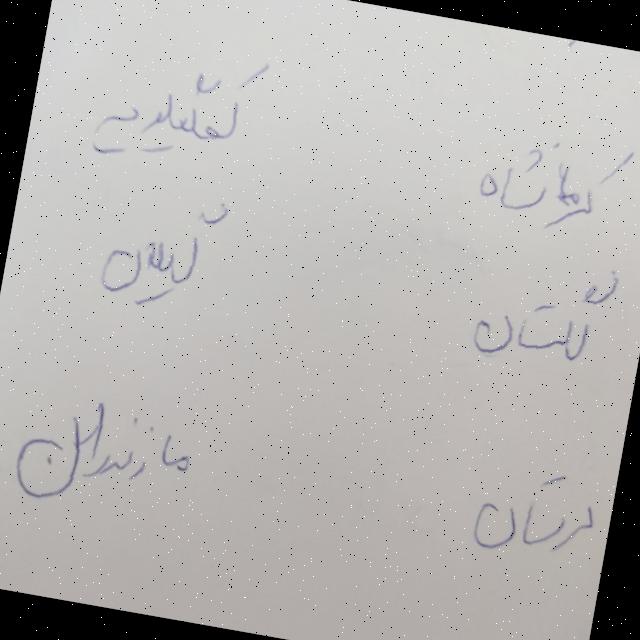 کرمانشاه
کهگیلویه
گلستان
گیلان
لرستان
مازندران